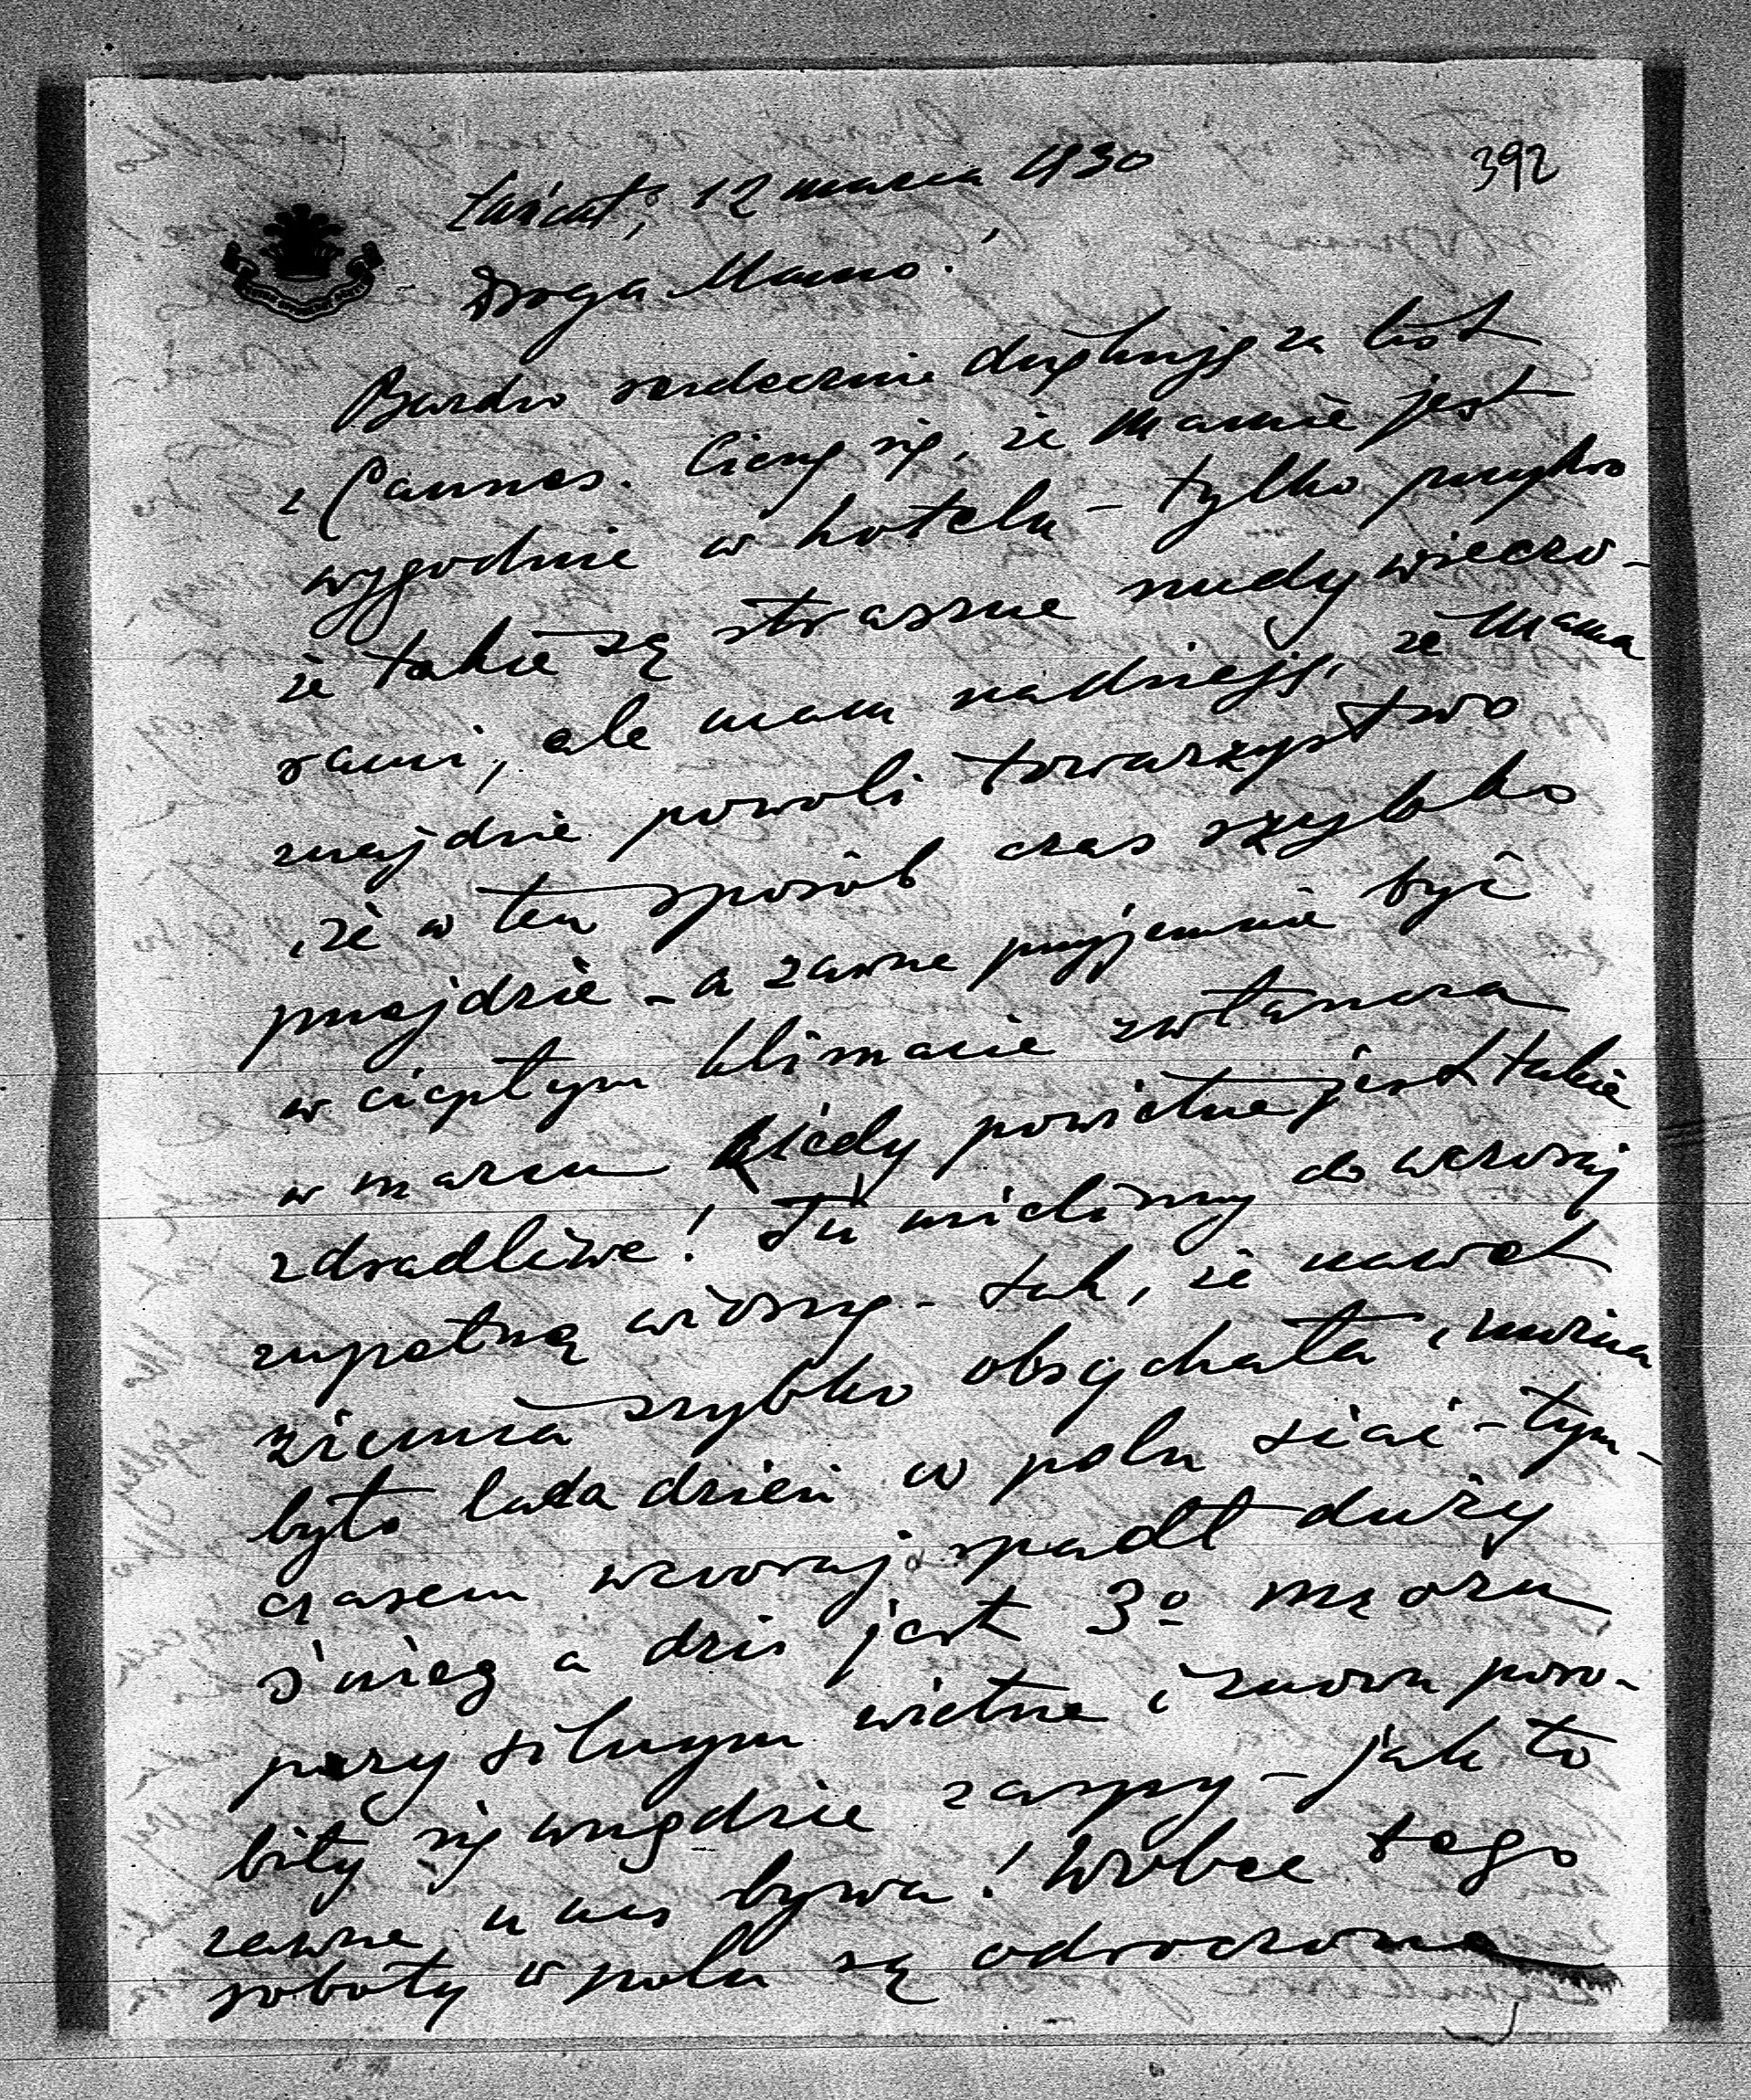 392
Łańcut, 12 marca, 1930
Droga Mamo.
Bardzo serdecznie dziękuję za list
z Cannes. Cieszę się, że Mamie jest
wygodnie w hotelu – tylko przykro
że takie są straszne nudy wieczo-
rami, ale mam nadzieję, że Mama
znajdzie powoli towarzystwo
i że w ten sposób czas szybko
przejdzie – a zawsze przyjemnie być
w ciepłym klimacie zwłaszcza
w marcu kiedy powietrze jest takie
zdradliwe! Tu mieliśmy do wczoraj
zupełną wiosnę – tak, że nawet
ziemia szybko obsychała i można
było lada dzień w polu siać – tym-
czasem wczoraj spadł duży
śnieg a dziś jest 3º mrozu
przy silnym wietrze i znowu poro-
biły się wszędzie zaspy – jak to
zawsze u nas bywa! Wobec tego
roboty w polu są odroczone